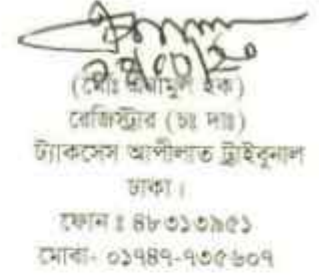 (মোঃ হক)
রেজিস্ট্রার (চঃ দাঃ)
ট্যাকসেস আপীলাত ট্রাইবুনাল
ঢাকা।
ফোন ঃ ৪৮৩১৩৯৫১
মোবা- ০১৭৪৭-৭৩৫৬০৭